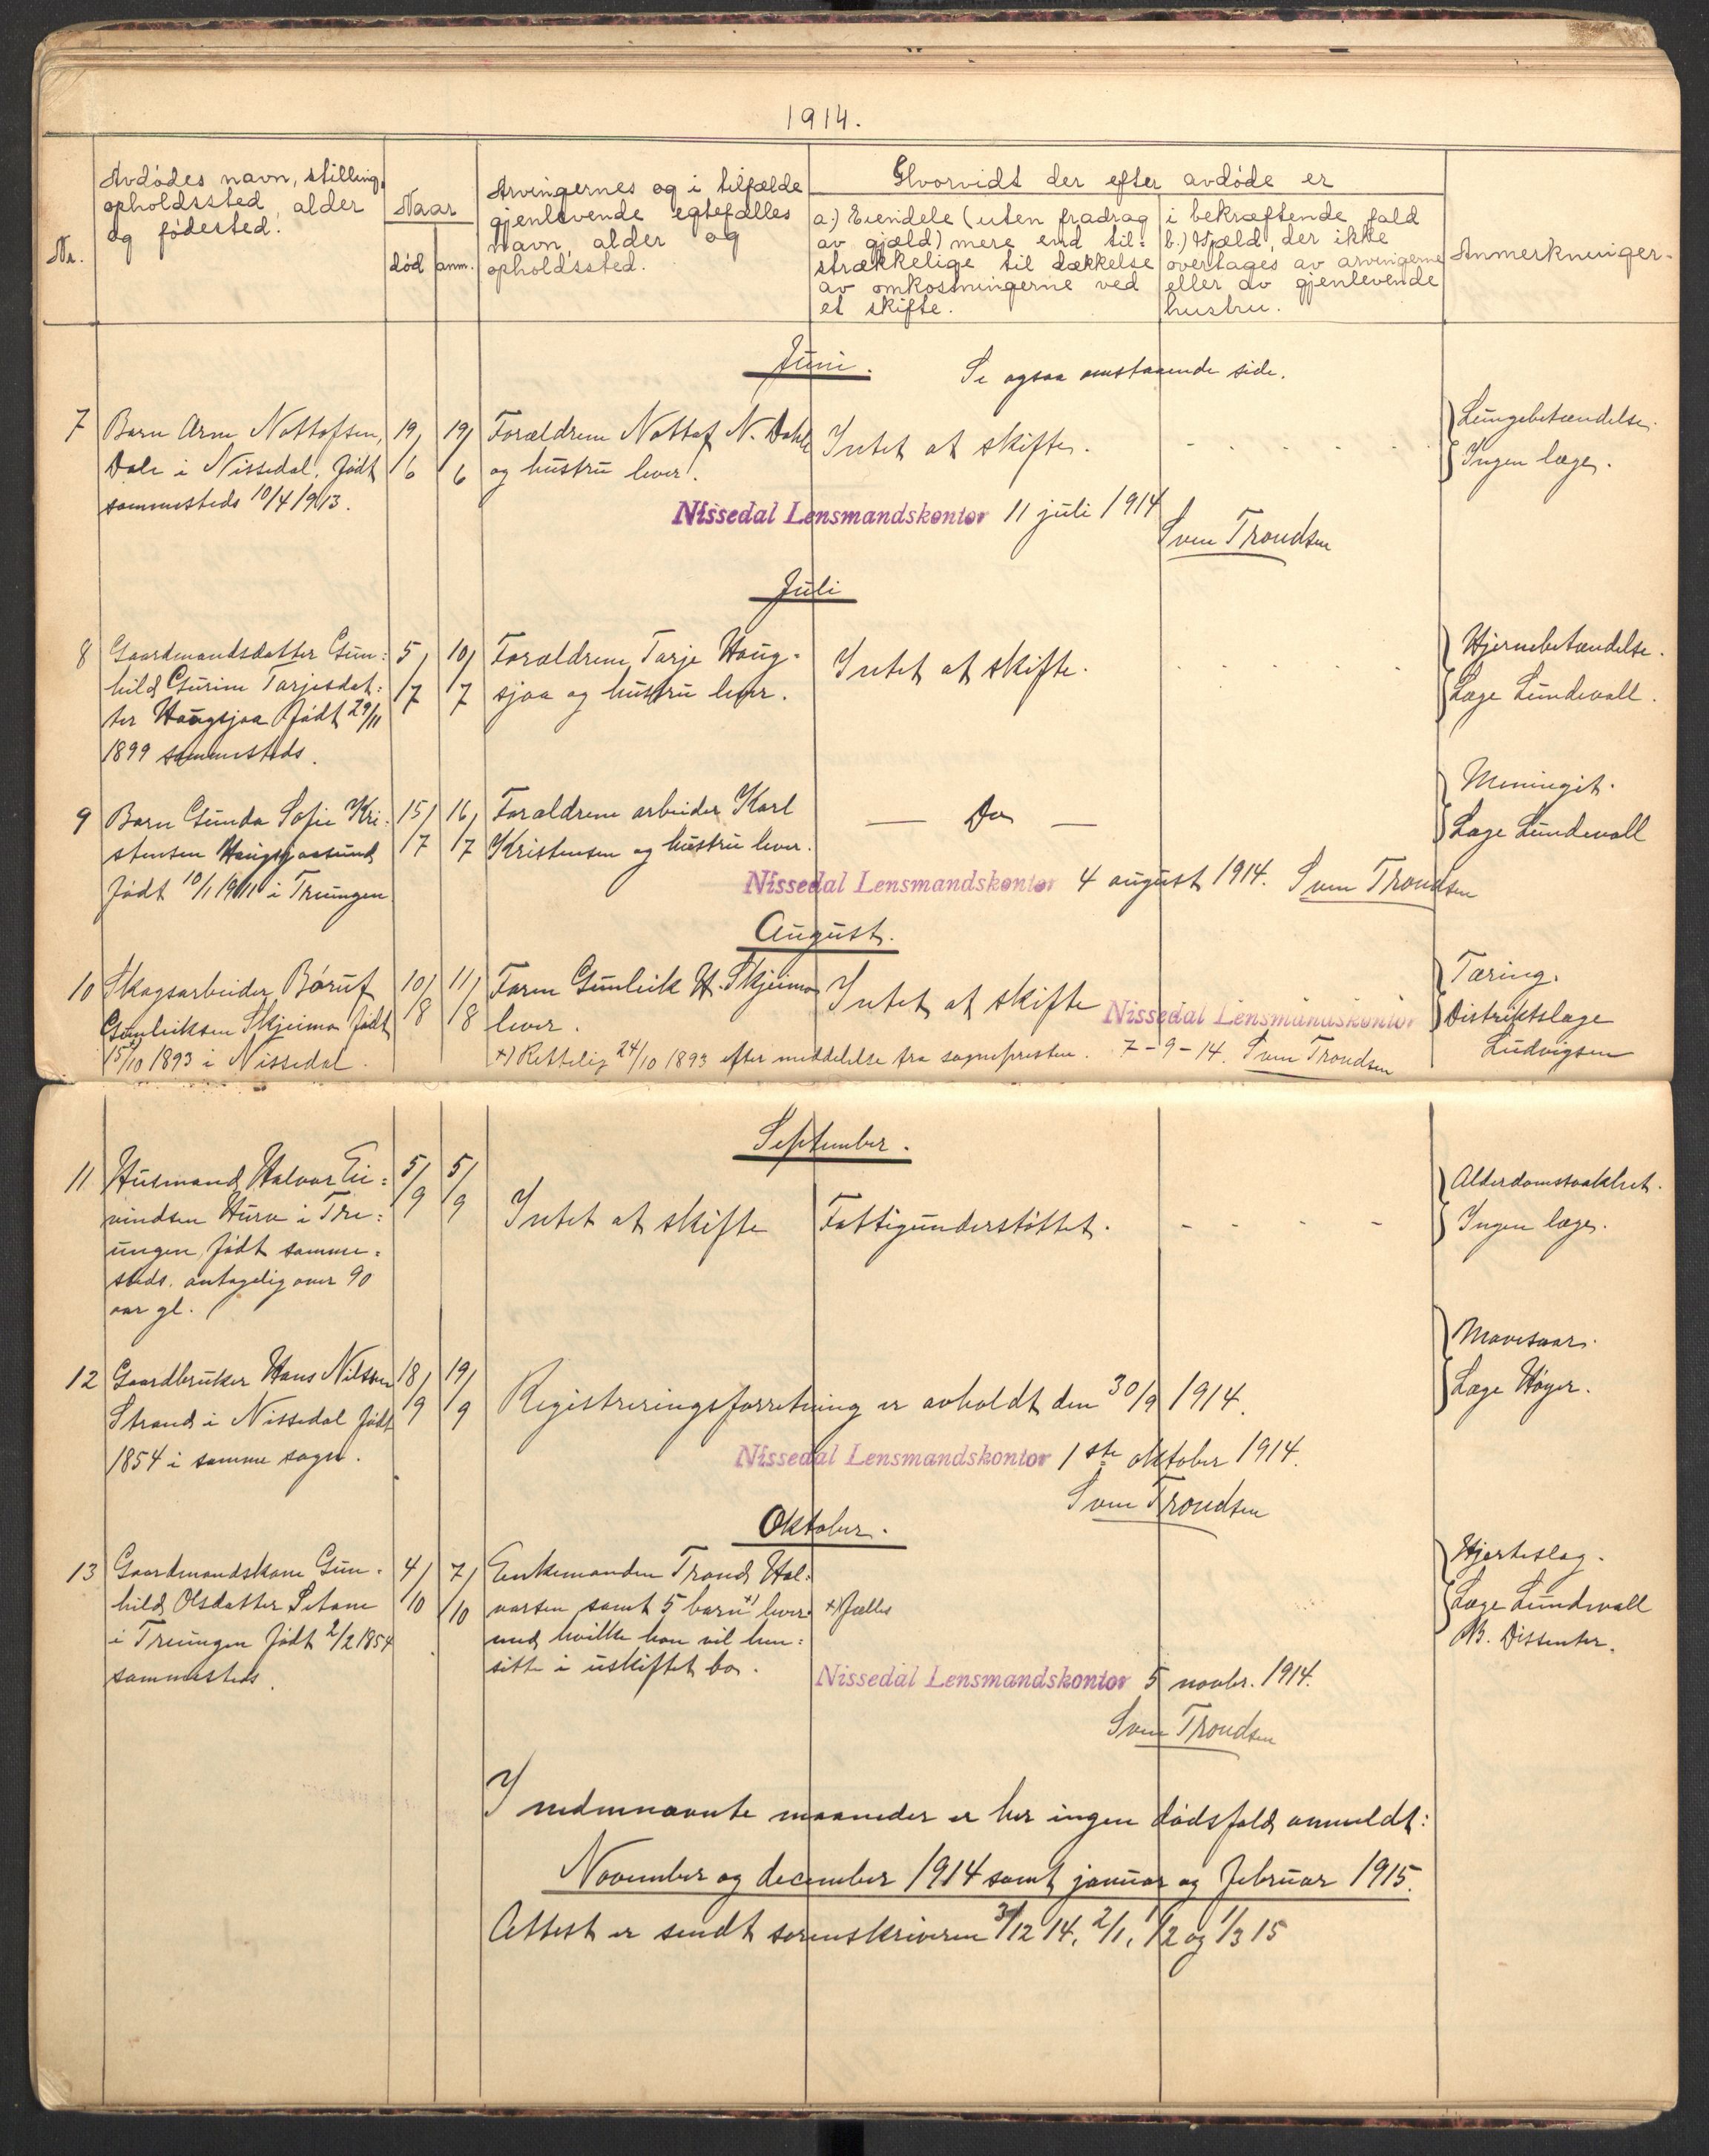 1914.
Nr.
Avdødes navn, stilling,
opholdssted, alder
og fødested.
Naar
død
anm.
Arvingernes og i tilfælde
gjenlevende egtefælles
navn, alder og
opholdssted.
Hvorvidt der efter avdøde er
a.) Eiendele (uten fradrag
av gjæld) mere end til=
strækkelige til dækkelse
av omkostningerne ved
et skifte.
i bekræftende fald
b.) Gjæld, der ikke
overtages av arvingerne
eller av gjenlevende
hustru.
Anmerkninger.
Juni. Se ogsaa omstaaende side.
7 Barn Arne Nottofsen, 19/ 19/ Forældrene Nottof N. Dale Intet at skifte. Lungebetændelse.
Dale i Nissedal, født /6 /6 og hustru lever. Ingen læge.
sammesteds 10/4 1913.
Nissedal Lensmandskontor 11 juli 1914
Sven Trondsen
Juli
8 Gaardmandsdatter Gun= 5/ 10/ Forældrene Tarje Haug- Intet at skifte. Hjernebetændelse.
hild Gurine Tarjesdat= /7 /7 sjaa og hustru lever. Læge Lundevall.
ter Haugsjaa født 29/11
1899 sammesteds.
9 Barn Gunda Sofie Kri= 15/ 16/ Forældrene arbeider Karl — Do — Meningit.
stensen Haugsjaasund /7 /7 Kristensen og hustru lever. Læge Lundevall
født 10/1 1911 i Treungen
Nissedal Lensmandskontor 4 august 1914. Sven Trondsen
August.
10 Skogsarbeider Børuf 10/ 11/ Faren Gunleik H. Skjeimo Intet at skifte Tæring.
Gunleiksen Skjeimo født /8 /8 lever. Nissedal Lensmandskontor Distriktslæge
15/10 1893 i Nissedal. x) Rettelig 24/10 1893 efter meddelelse fra sognepresten. 7-9-14. Sven Trondsen Ludvigsen
September.
11 Husmand Halvor Ei= 5/ 5/ Intet at skifte Fattigunderstøttet. Alderdomssvakhet.
vindsen Hura i Tre= /9 /9 Ingen læge.
ungen, født samme=
steds. antagelig over 90
aar gl.
12 Gaardbruker Hans Nilssen 18/ 19/ Registreringsforretning er avholdt den 30/9 1914. Mavesaar.
Strand i Nissedal født /9 /9 Læge Høyer.
1854 i samme sogn.
Nissedal Lensmandskontor 1ste oktober 1914.
Sven Trondsen
Oktober.
13 Gaardmandskone Gun= 4/ 7/ Enkemanden Trond Hal= Hjerteslag.
hild Olsdatter Setane /10 /10 vorsen samt 5 barn x) lever x) Fælles Læge Lundevall
i Treungen født 2/2 1854 med hvilke han vil hen= NB. Dissenter.
sammesteds. sitte i uskiftet bo.
Nissedal Lensmandskontor 5 novbr. 1914.
Sven Trondsen
I nedennævnte maaneder er her ingen dødsfald anmeldt:
November og december 1914 samt januar og februar 1915.
Attest er sendt sorenskriveren 3/12 14, 2/1, 1/2 og 1/3 15